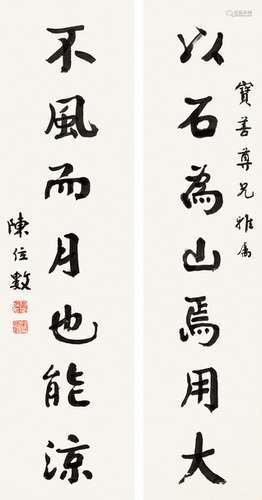 寶善尊兄雅屬
以石為山焉用大
不風而月也能涼
陳位數